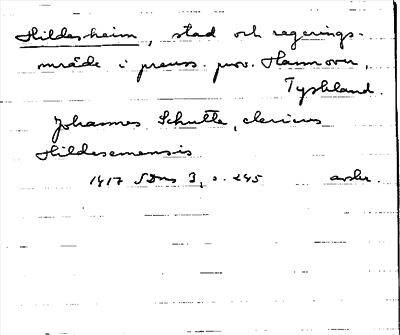 Hildesheim, stad och regerings-
område i preuss. prov. Hannover,
Tyskland.
Johannes Schutte, clericus
Hildesemensis
1417 SDns 3, s. 245 avskr.